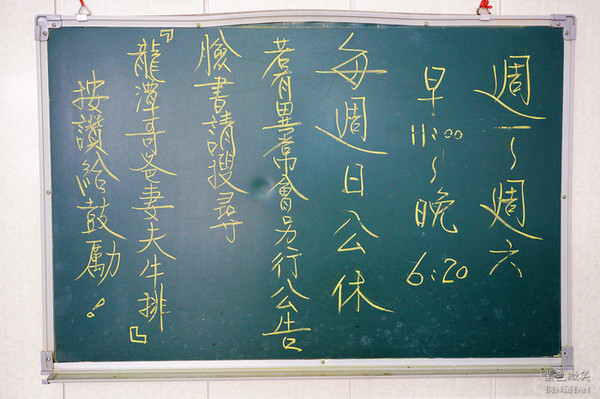 週一~週六
早11:00~晚6:20
每週日公休
若有異常會另行公告
臉書請搜尋
『龍潭哥爸妻夫牛排』
按讚給鼓勵!
紫色微笑
BENSJEAN